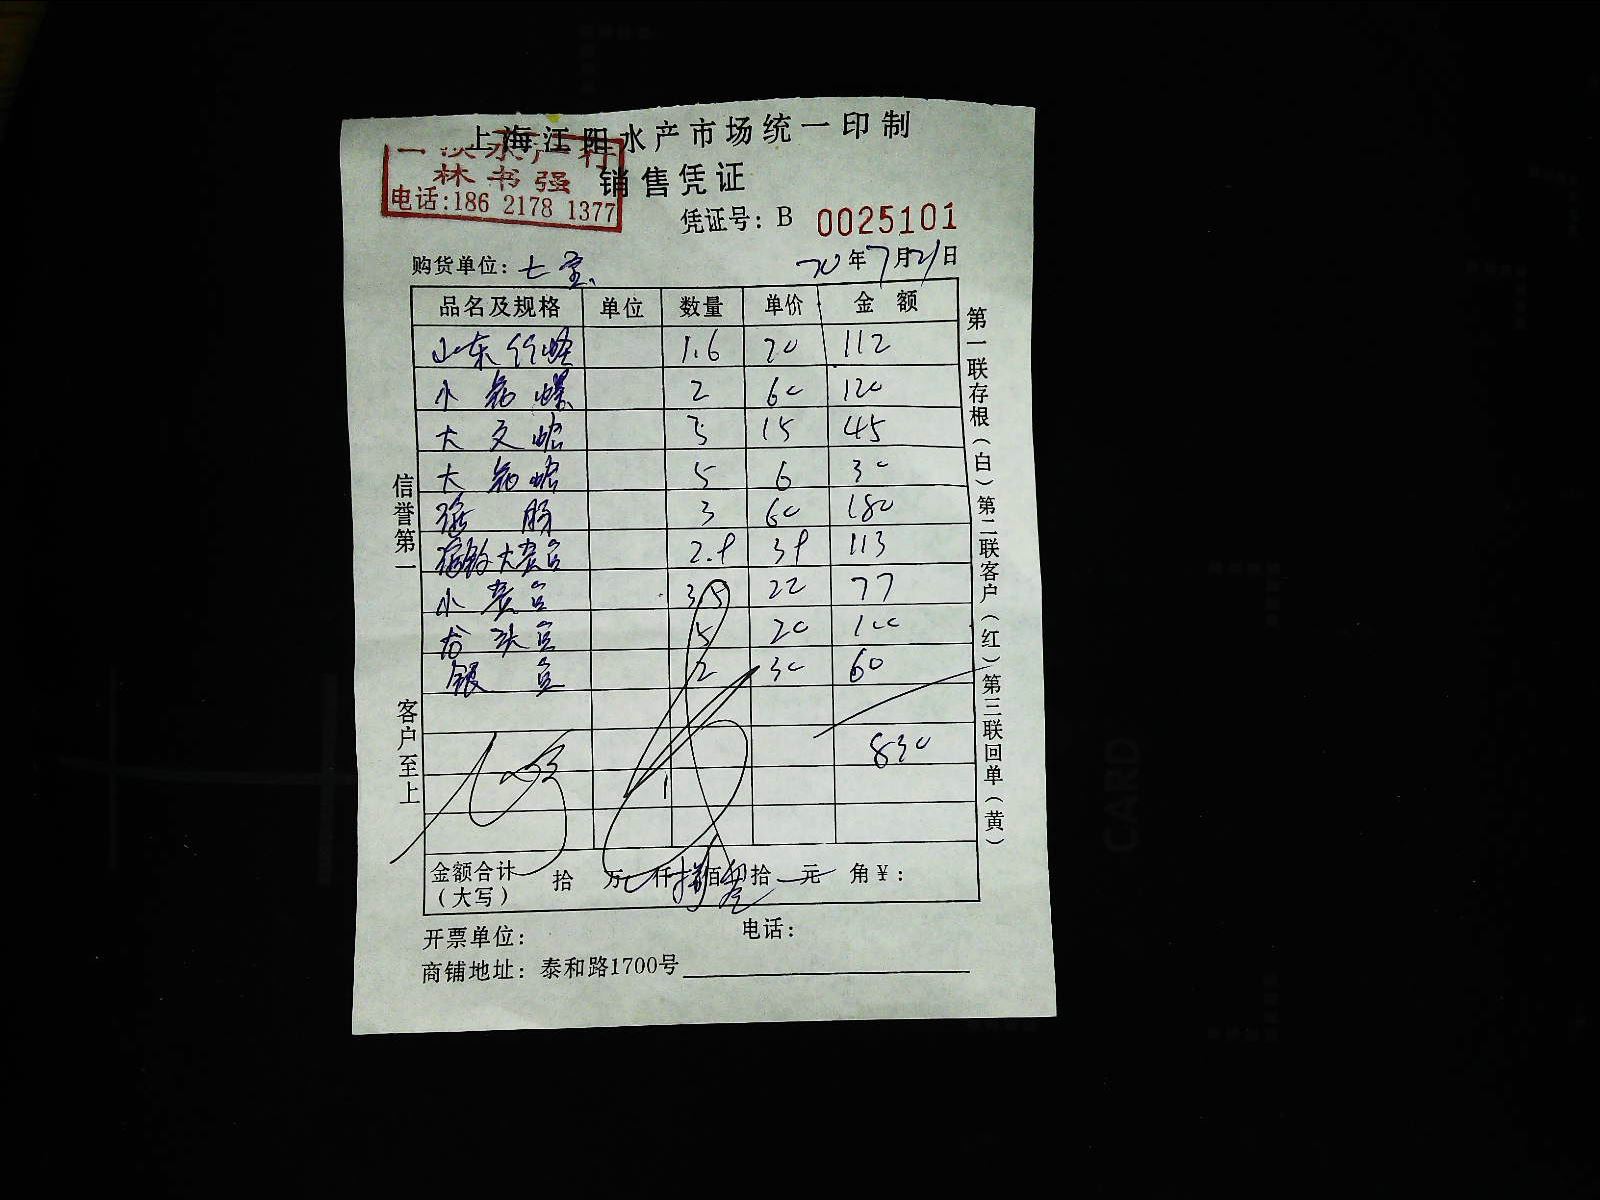 上海江阳水产市场统一印制
水产行
林书强
电话:186 2178 1377
销售凭证
凭证号: B 0025101
购货单位: 七宝 20年7月21日
品名及规格 单位 数量 单价 金额
山东竹蛏 1.6 70 112
小花螺 2 60 120
大文蛤 3 15 45
大花蛤 5 6 30
海肠 3 60 180
大 2.9 39 113
小 3.5 22 77
龙头 5 20 100
银 2 30 60
830
金额合计(大写) 拾 万 仟 捌佰 叁拾 元 角 ¥:
开票单位: 电话:
商铺地址: 泰和路1700号
信誉第一 客户至上
第一联存根(白)第二联客户(红)第三联回单(黄)
CARD